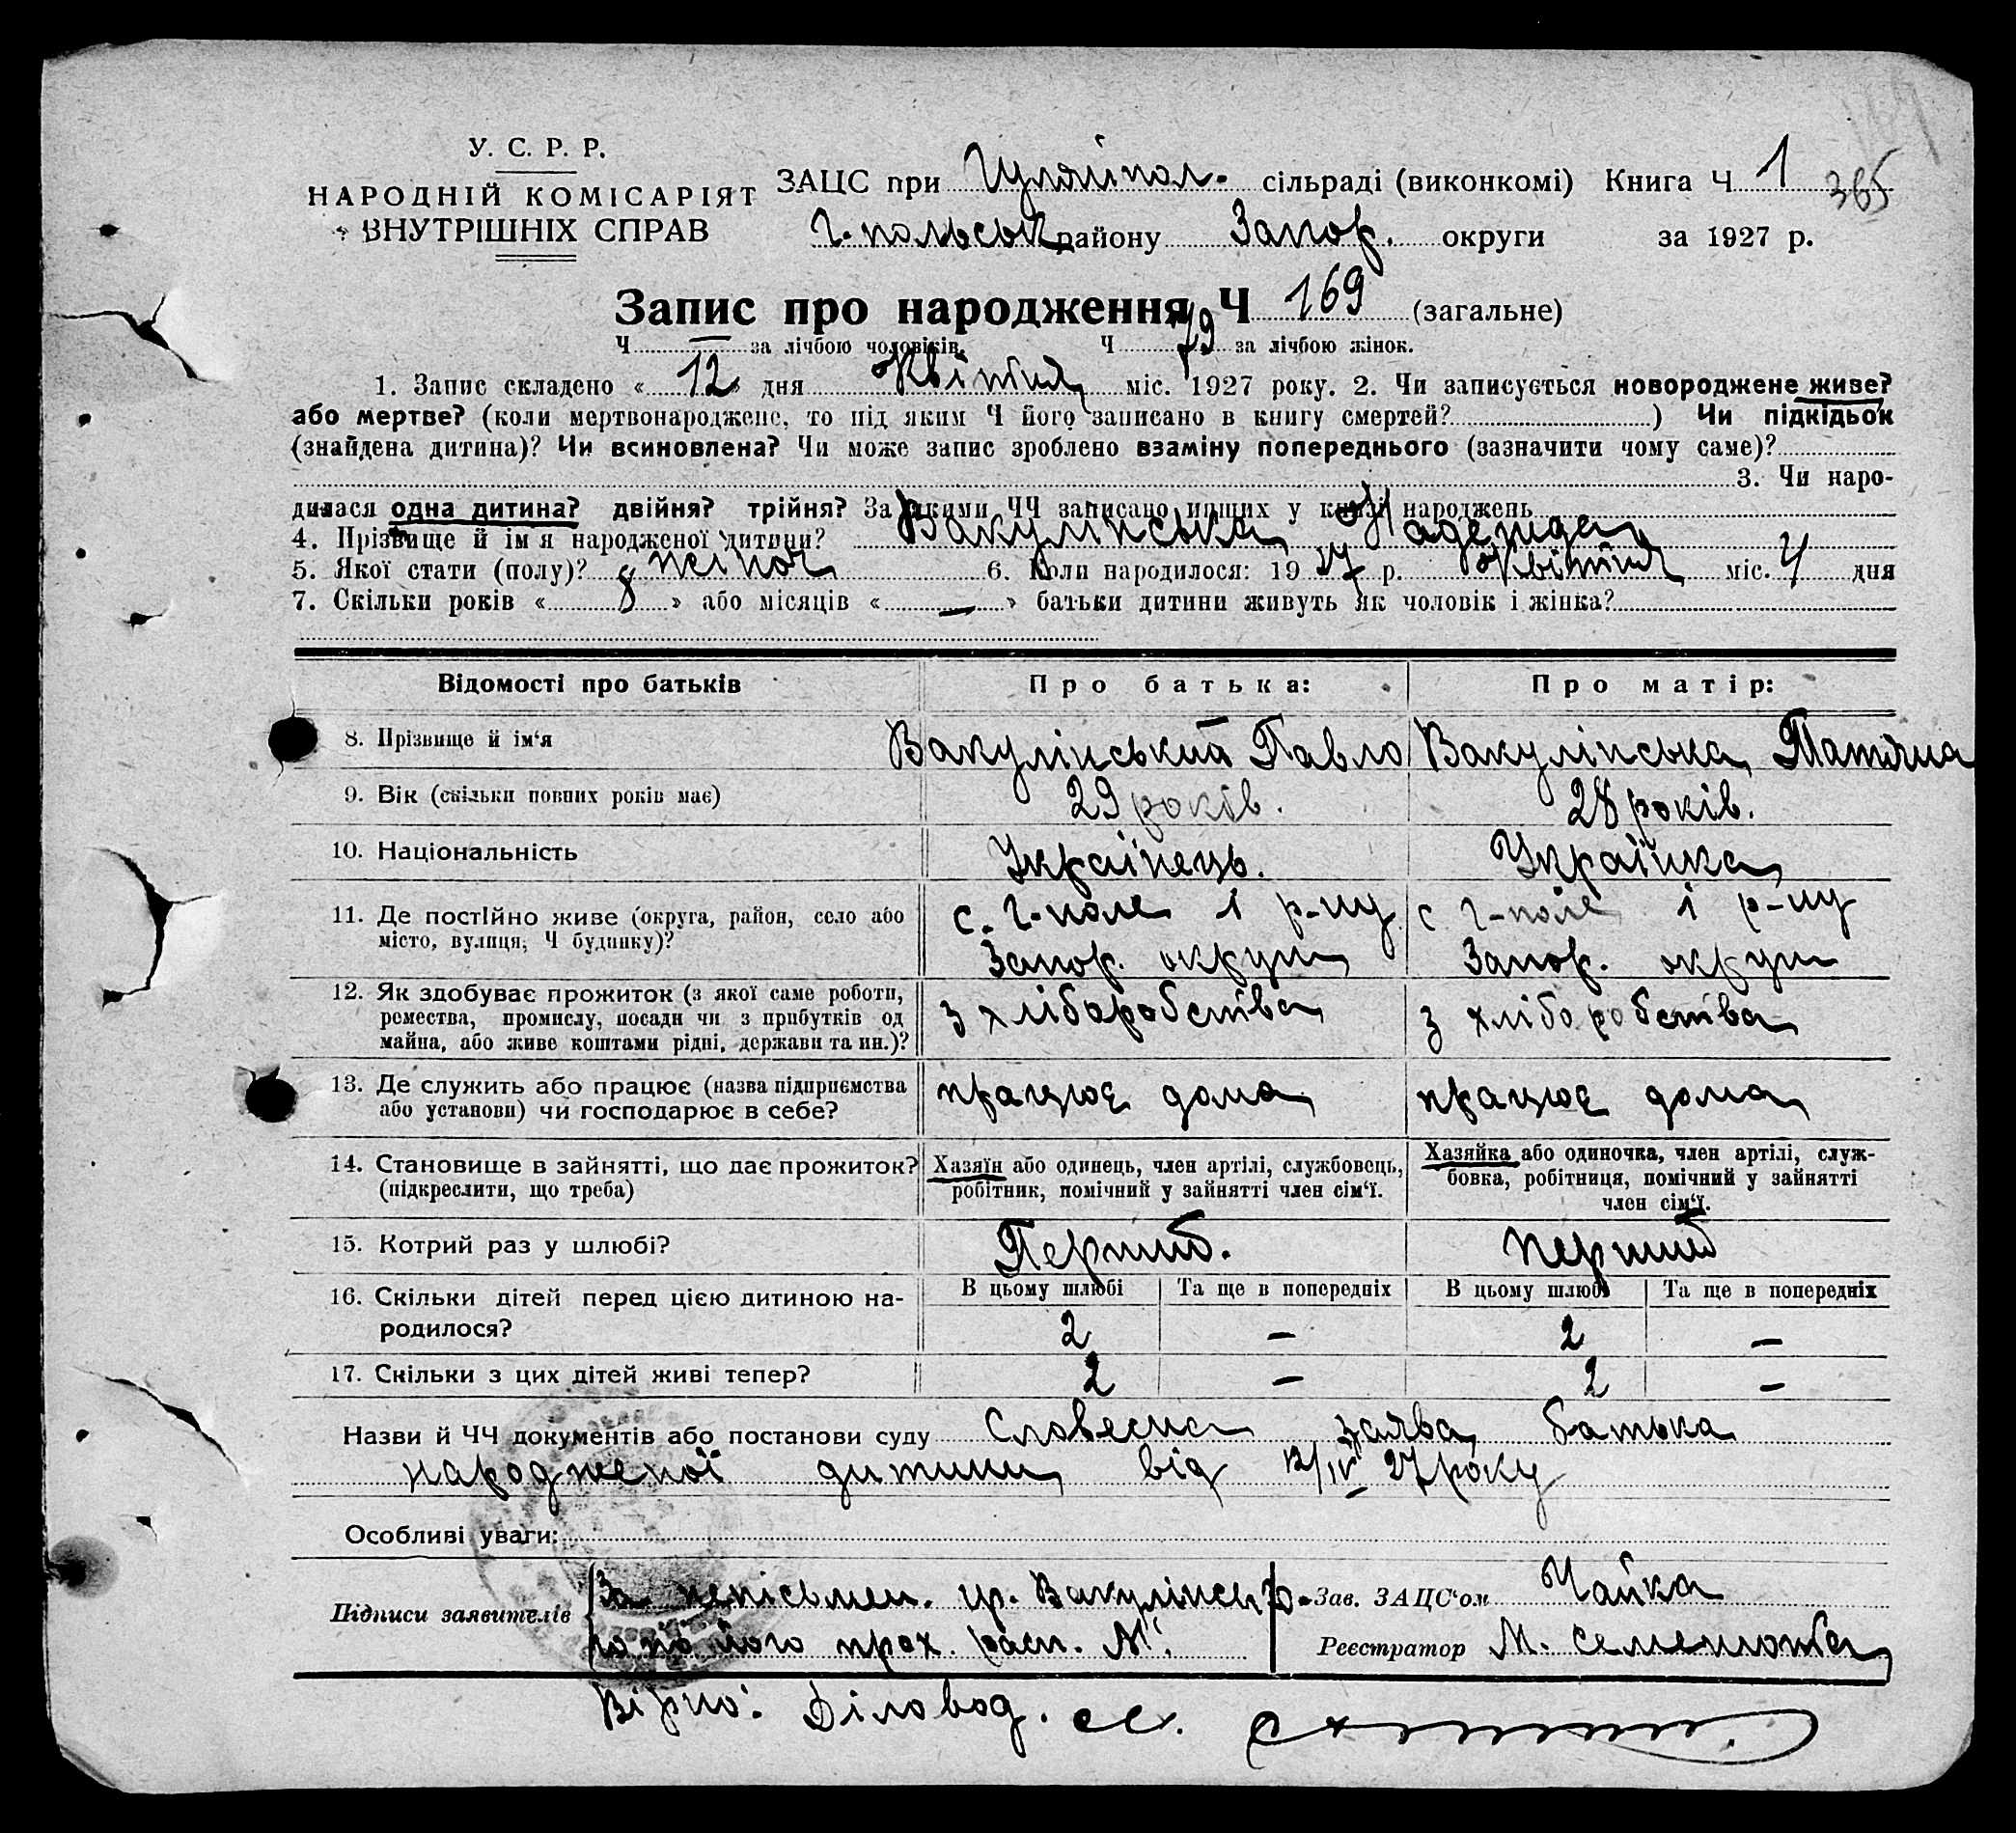 У. С. Р. Р.
НАРОДНІЙ КОМІСАРІЯТ
ВНУТРІШНІХ СПРАВ
ЗАЦС при Гуляйпол. сільраді (виконкомі) Книга Ч 1
365
Г.польськ району Запор. округи за 1927 р.
Запис про народження Ч 169 (загальне)
Ч — за лічбою чоловіків. Ч 79 за лічбою жінок.
1. Запис складено « 12 » дня Квітня міс. 1927 року. 2. Чи записується новороджене живе?
або мертве? (коли мертвонароджене, то під яким Ч його записано в книгу смертей? ) Чи підкідьок
(знайдена дитина)? Чи всиновлена? Чи може запис зроблено взаміну попереднього (зазначити чому саме)?
3. Чи наро-
дилася одна дитина? двійня? трійня? За якими ЧЧ записано инших у книзі народжень
4. Прізвище й ім я народженої дитини? Вакулінська Надежда
5. Якої стати (полу)? жіноч 6. Коли народилося: 19 27 р. Квітня міс. 4 дня
7. Скільки років « 8 » або місяців « — » батьки дитини живуть як чоловік і жінка?
Відомості про батьків Про батька: Про матір:
8. Прізвище й ім‘я Вакулінський Павло Вакулінська Татяна
9. Вік (скільки повних років має) 29 років. 28 років.
10. Національність Українець. Українка
11. Де постійно живе (округа, район, село або місто, вулиця, Ч будинку)? с. Г-поле і р-ну Запор. округи с Г-поле і р-ну Запор. округи
12. Як здобуває прожиток (з якої саме роботи, ремества, промислу, посади чи з прибутків од майна, або живе коштами рідні, держави та ин.)? з хліборобства з хліборобства
13. Де служить або працює (назва підприємства або установи) чи господарює в себе? працює дома працює дома
14. Становище в зайнятті, що дає прожиток? (підкреслити, що треба) Хазяїн або одинець, член артілі, службовець, робітник, помічний у зайнятті член сім‘ї. Хазяйка або одиночка, член артілі, служ-бовка, робітниця, помічний у зайнятті член сім‘ї.
15. Котрий раз у шлюбі? Перший. перший
16. Скільки дітей перед цією дитиною на-родилося? В цьому шлюбі Та ще в попередніх В цьому шлюбі Та ще в попередніх
2 — 2 —
17. Скільки з цих дітей живі тепер? 2 — 2 —
Назви й ЧЧ документів або постанови суду Словесна заява батька
народженої дитини від 12/IV 27 року
Особливі уваги:
Підписи заявителів За непісьмен. гр. Вакулінсь
го по його прох. расп. Зав. ЗАЦС‘ом Чайка
Реєстратор М. Семенюта
Вірно: Діловод.